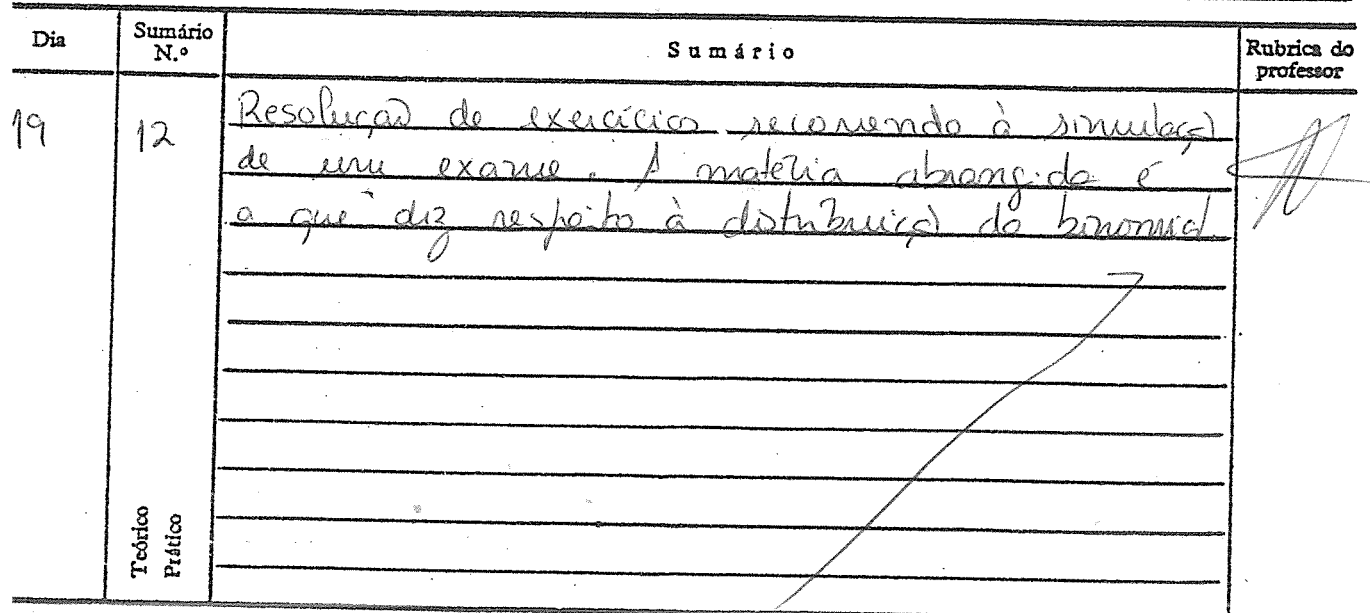 Dia Sumário N.º Sumário Rubrica do professor
19 12 Resolução de exercícios recorrendo à simulação
de um exame. A matéria abrangida é
a que diz respeito à distribuição da binomial
Teórico
Prático